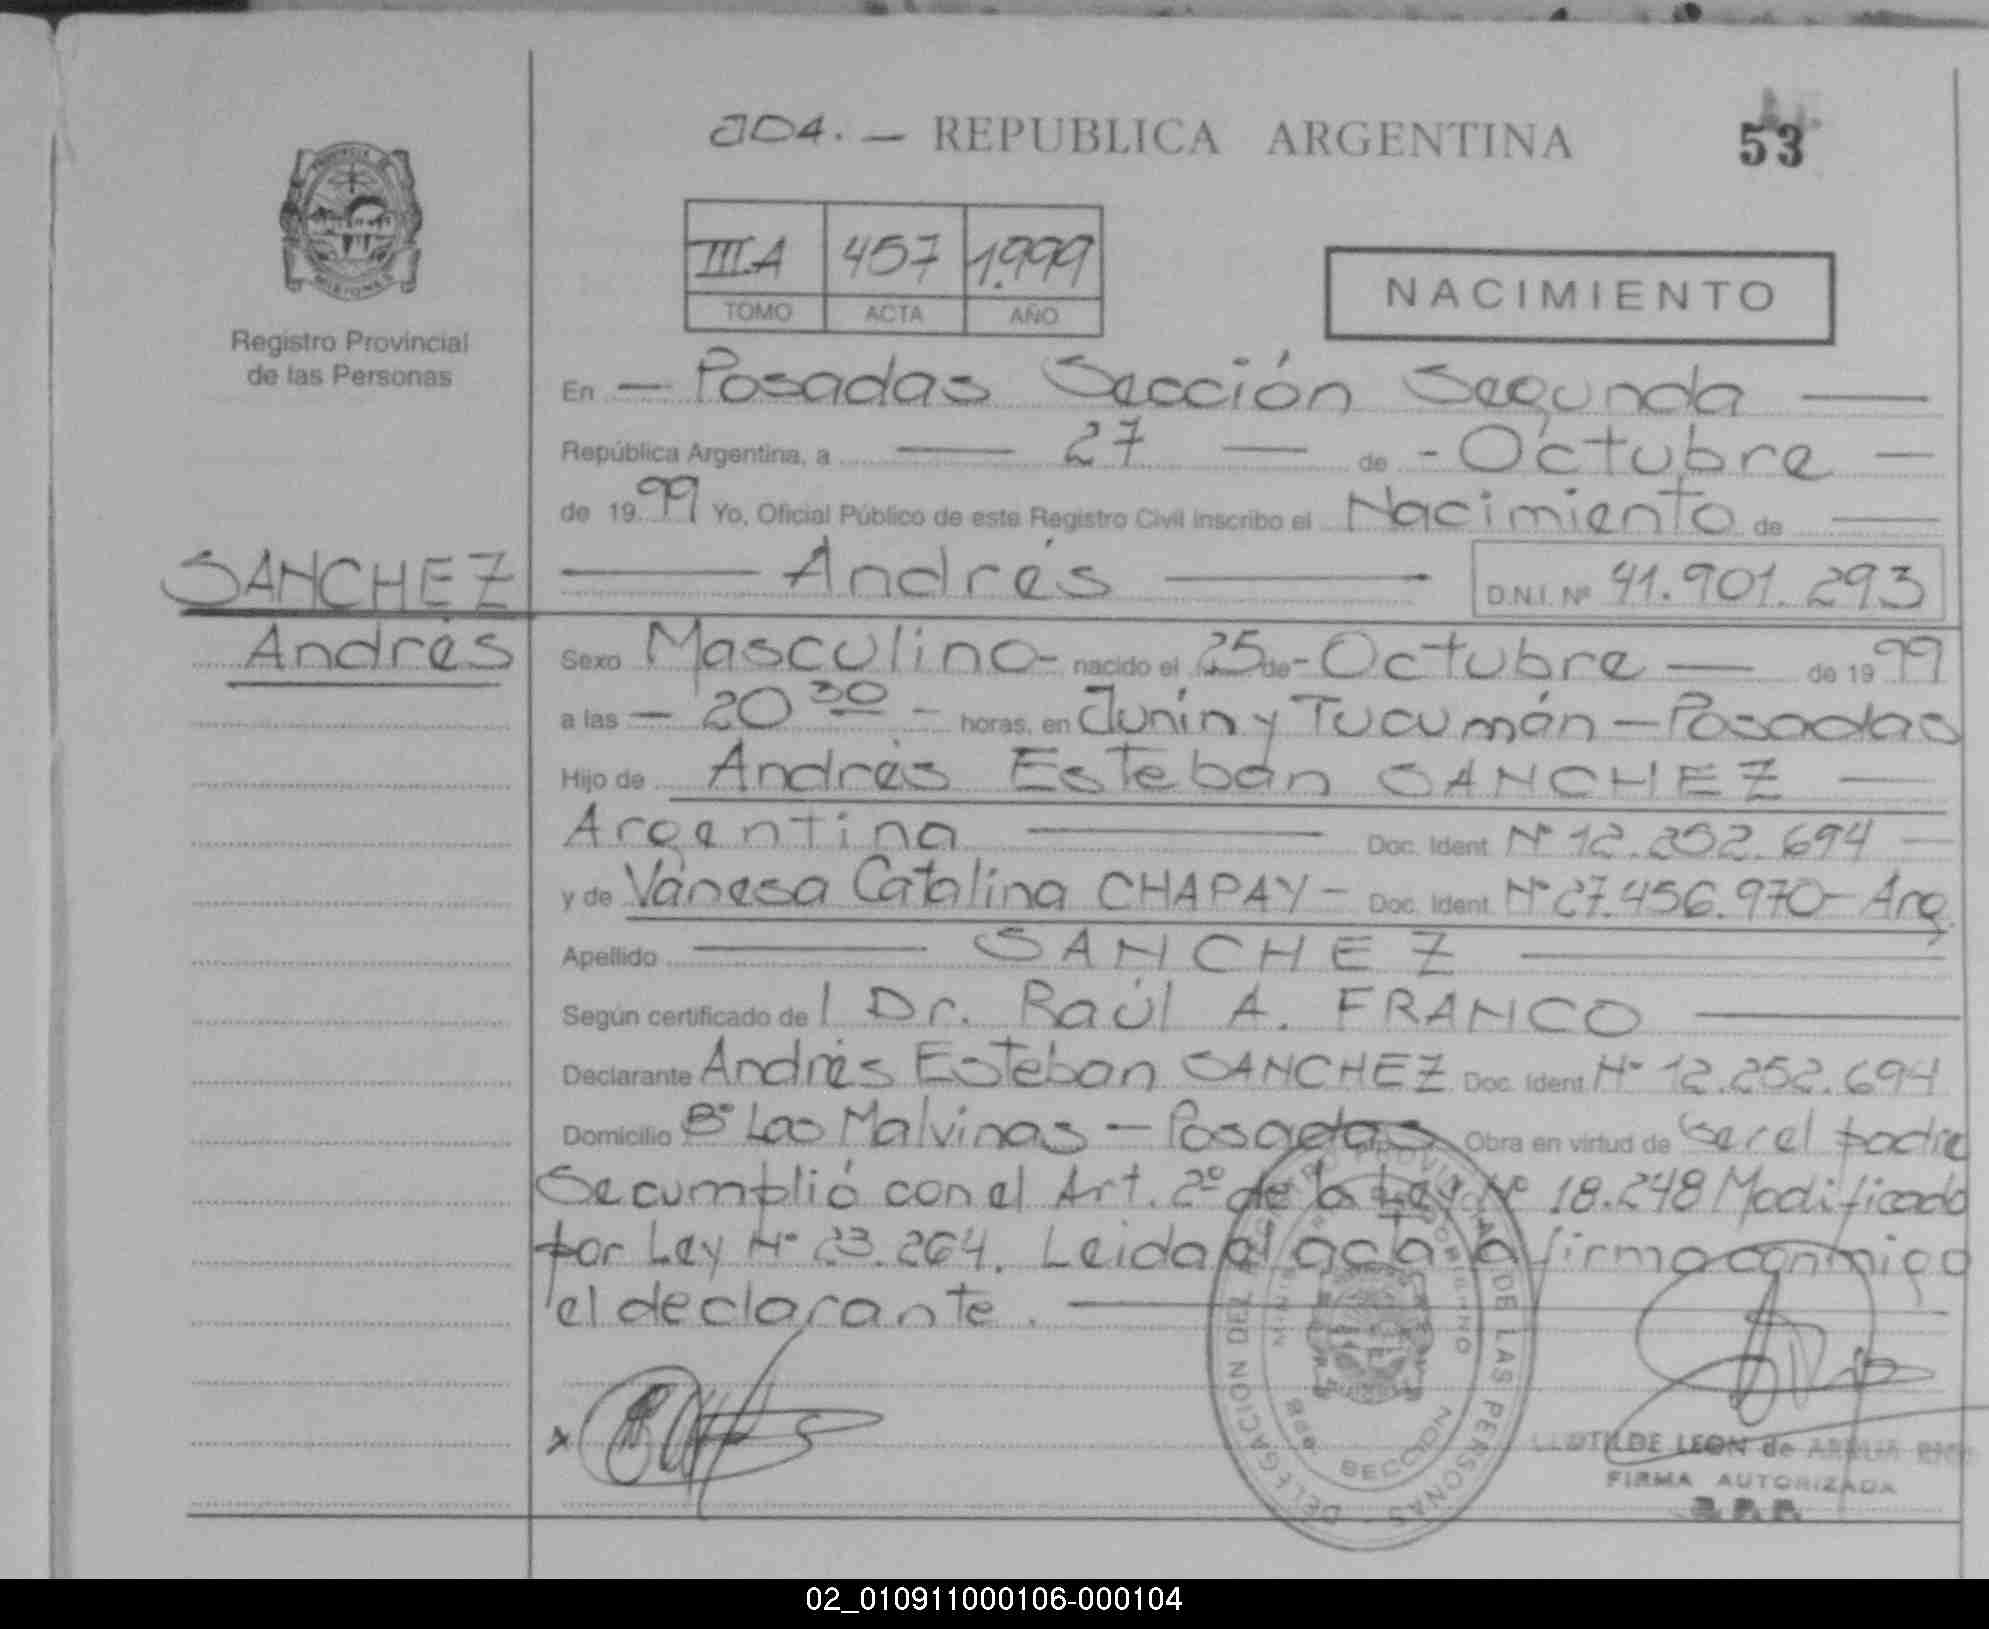 204. — REPUBLICA ARGENTINA
53
III.A 457 1.999
TOMO ACTA AÑO
NACIMIENTO
MISIONES
Registro Provincial
de las Personas
En — Posadas Sección Segunda —
República Argentina, a — 27 — de - Octubre —
de 19 99 Yo, Oficial Público de este Registro Civil inscribo el Nacimiento de —
SANCHEZ
Andrés
— Andrés — D.N.I. Nº 41.901.293
Sexo Masculino - nacido el 25 de - Octubre — de 19 99
a las — 20 30 — horas, en Junín y Tucumán — Posadas
Hijo de Andrés Esteban SANCHEZ —
Argentina — Doc. Ident. Nº 12.252.694 —
y de Vanesa Catalina CHAPAY - Doc. Ident. Nº 27.456.970 - Arg.
Apellido — SANCHEZ —
Según certificado de l Dr. Raúl A. FRANCO —
Declarante Andrés Esteban SANCHEZ Doc. Ident. Nº 12.252.694
Domicilio Bº Las Malvinas — Posadas Obra en virtud de ser el padre
Se cumplió con el Art. 2º de la Ley Nº 18.248 Modificado
por Ley Nº 23.264. Leida el acta la firma conmigo
el declarante. —
DELEGACION DEL REGISTRO PROVINCIAL DE LAS PERSONAS
SECCION
LEON de
FIRMA AUTORIZADA
02_010911000106-000104